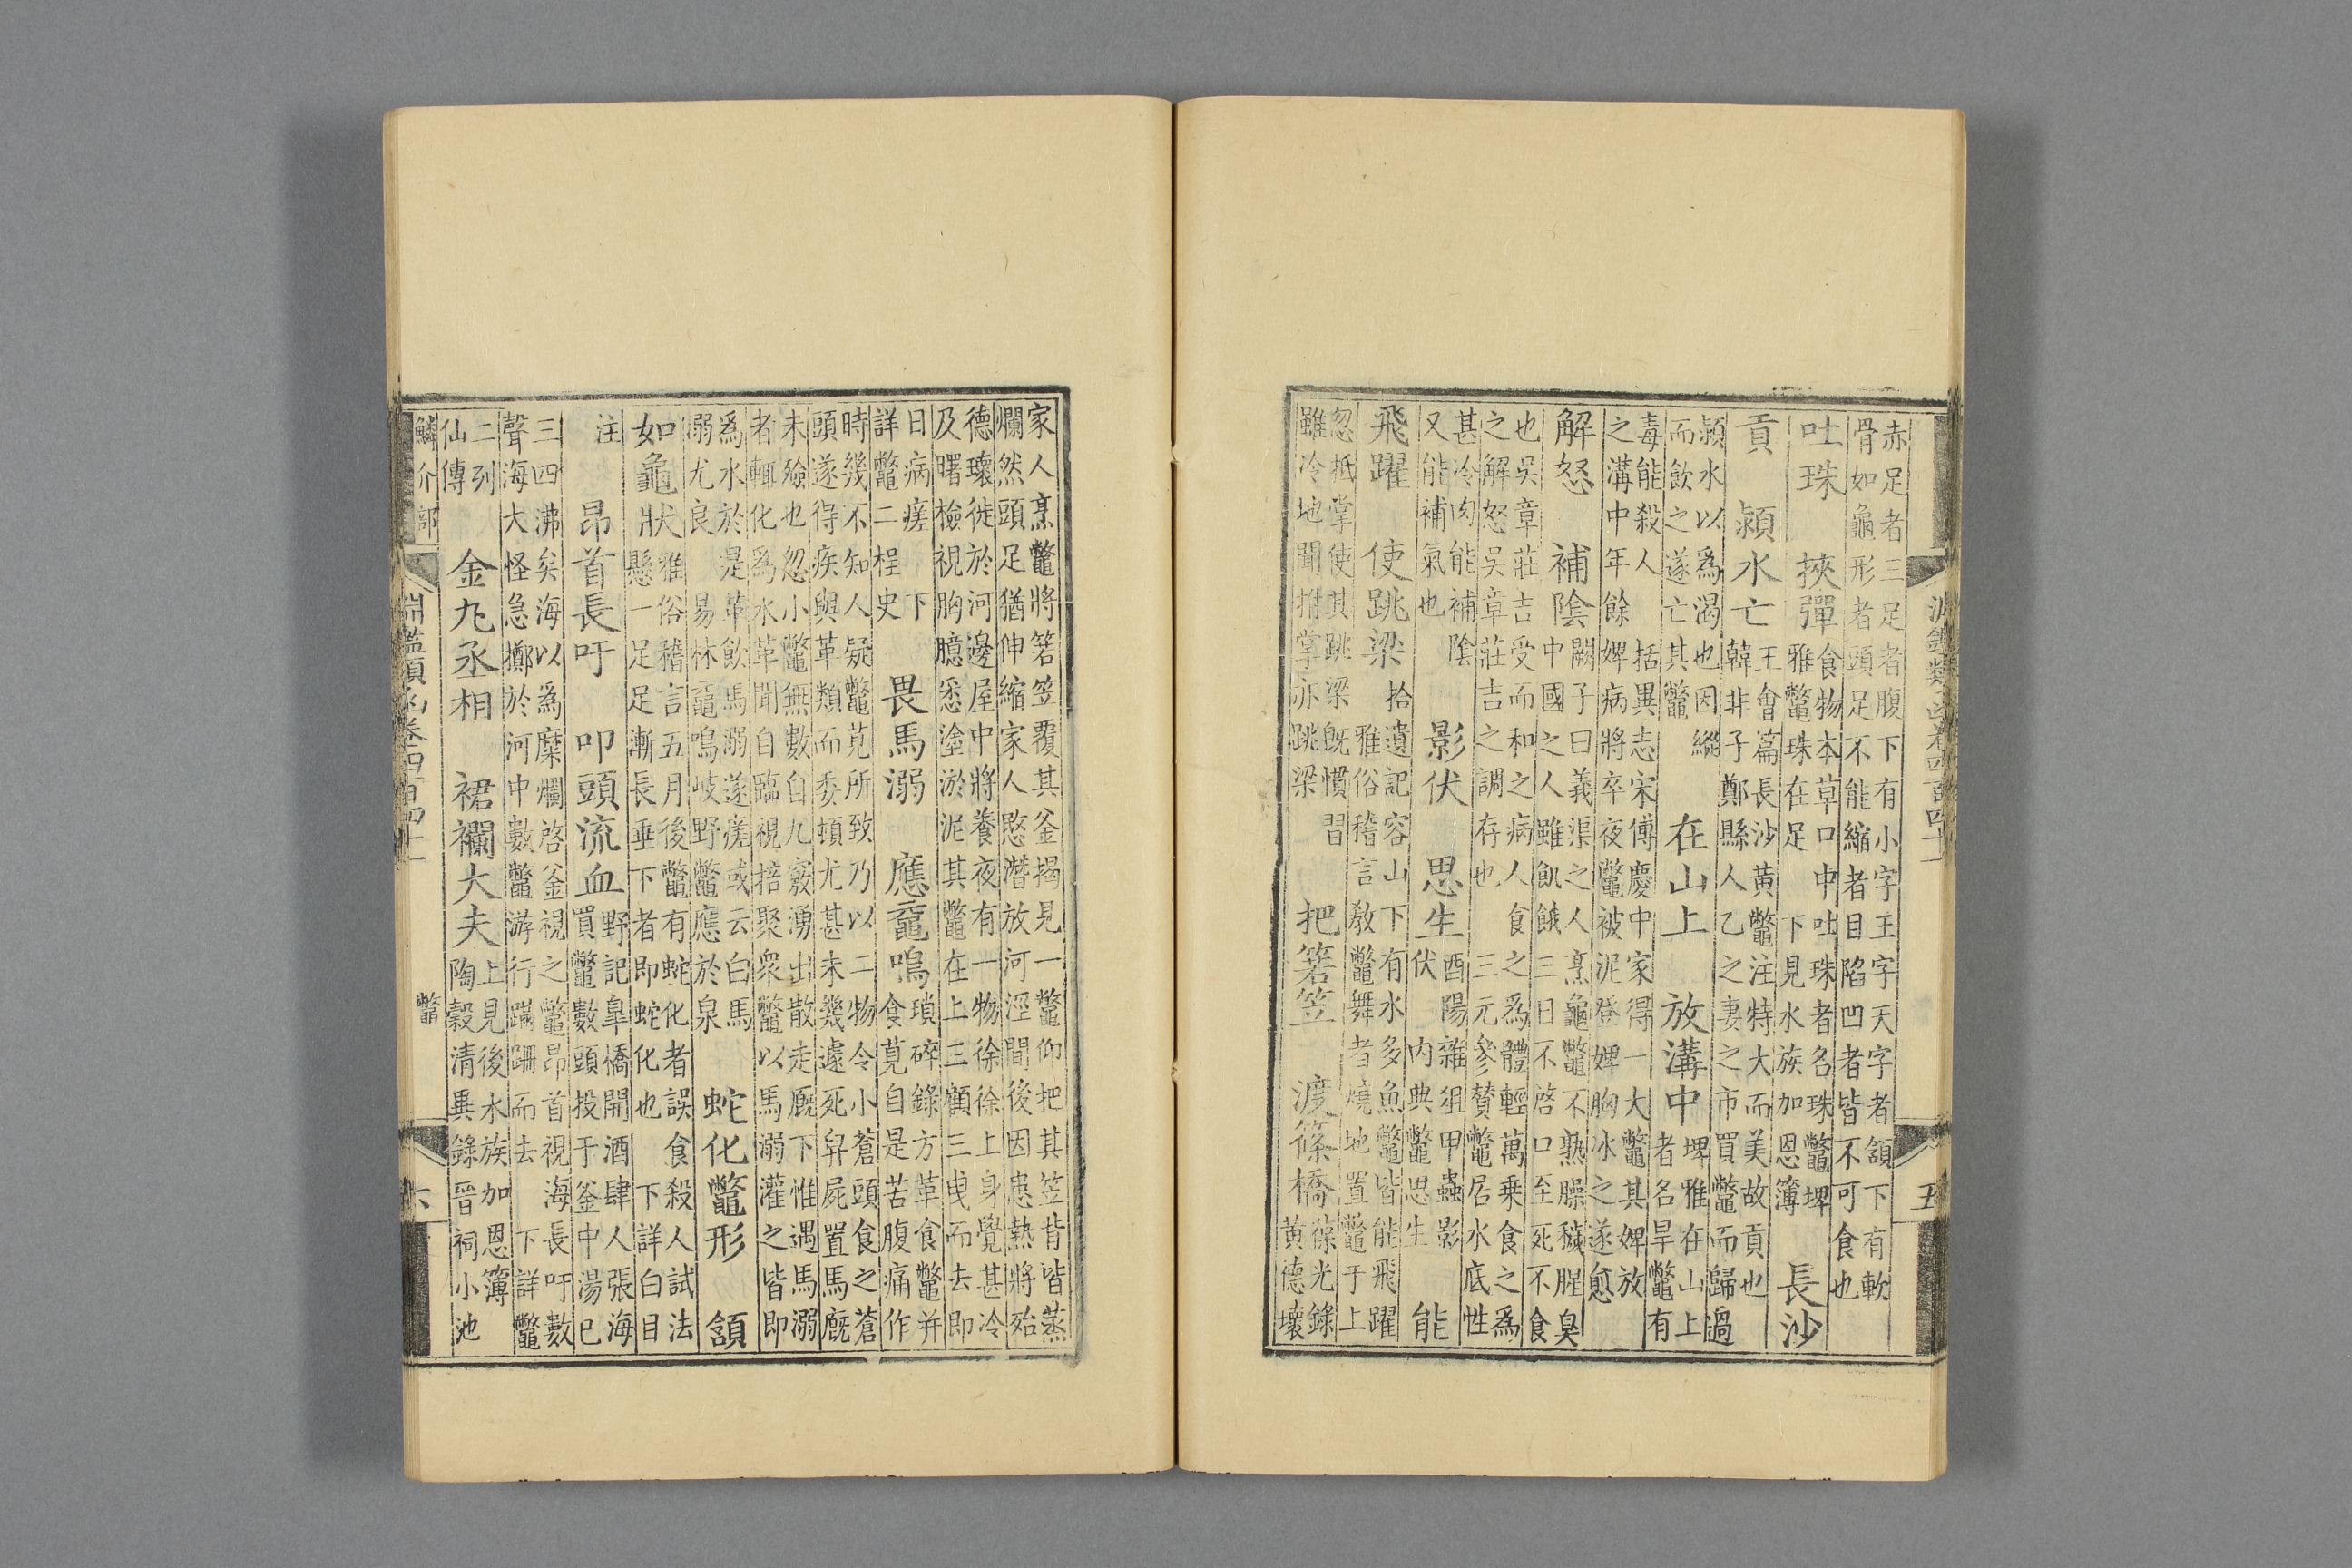 淵鑑類函卷四百四十一 五
赤足者三足者腹下有小字王字天字者頷下有軟
骨如龜形者頭足不能縮者目陷凹者皆不可食也
吐珠 挾彈 食物本草口中吐珠者名珠鼈埤
雅鼈珠在足 下見水族加恩簿 長沙
貢 潁水亡 王會篇長沙黃鼈注特大而美故貢也
韓非子鄭縣人乙之妻之市買鼈而歸過
潁水以爲渴也因縱
而飲之遂亡其鼈 在山上 放溝中 埤雅在山上
者名旱鼈有
毒能殺人 括異志宋傅慶中家得一大鼈其婢放
之溝中年餘 婢病將卒夜鼈被泥登婢胸冰之遂愈
解怒 補陰 闕子曰義渠之人烹龜鼈不熟臊穢腥臭
中國之人雖飢餓三日不啓口至死不食
也吳章莊吉受而和之病人食之爲體輕萬乘食之爲
之解怒吳章莊吉之調存也 三元參贊鼈居水底性
甚冷肉能補陰
又能補氣也 影伏 思生 酉陽雜俎甲蟲影
伏 內典鼈思生 能
飛躍 使跳梁 拾遺記容山下有水多魚鼈皆能飛躍
雅俗稽言教鼈舞者燒地置鼈于上
忽抵掌使其跳梁旣慣習
雖冷地聞拊掌亦跳梁 把箬笠 渡篠橋 葆光錄
黃德壞
家人烹鼈將箬笠覆其釜揭見一鼈仰把其笠背皆蒸
爛然頭足猶伸縮家人愍潛放河涇間後因患熱將殆
德壞徙於河邊屋中將養夜有一物徐徐上身覺甚冷
及曙檢視胸臆悉塗淤泥其鼈在上三顧三曳而去即
日病瘥 下
詳鼈二桯史 畏馬溺 應黿鳴 瑣碎錄方革食鼈并
食莧自是苦腹痛作
時幾不知人疑鼈莧所致乃以二物令小蒼頭食之蒼
頭遂得疾與革類而委頓尤甚未幾遽死舁屍置馬廐
未殮也忽小鼈無數自九竅湧出散走廐下惟遇馬溺
者輒化爲水革聞自臨視掊聚衆鼈以馬溺灌之皆即
爲水於是革飲馬溺遂瘥或云白馬
溺尤良 易林黿鳴岐野鼈應於泉 蛇化鼈形 頷
如龜狀 雅俗稽言五月後鼈有蛇化者誤食殺人試法
懸一足足漸長垂下者即蛇化也 下詳白目
注 昂首長吁 叩頭流血 野記臯橋開酒肆人張海
買鼈數頭投于釜中湯已
三四沸矣海以爲糜爛啓釜視之鼈昂首視海長吁數
聲海大怪急擲於河中數鼈游行蹣跚而去 下詳鼈
二列
仙傳 金丸丞相 裙襴大夫 上見後水族加恩簿
陶穀清異錄晉祠小池
鱗介部 淵鑑類函卷四百四十一 鼈 六